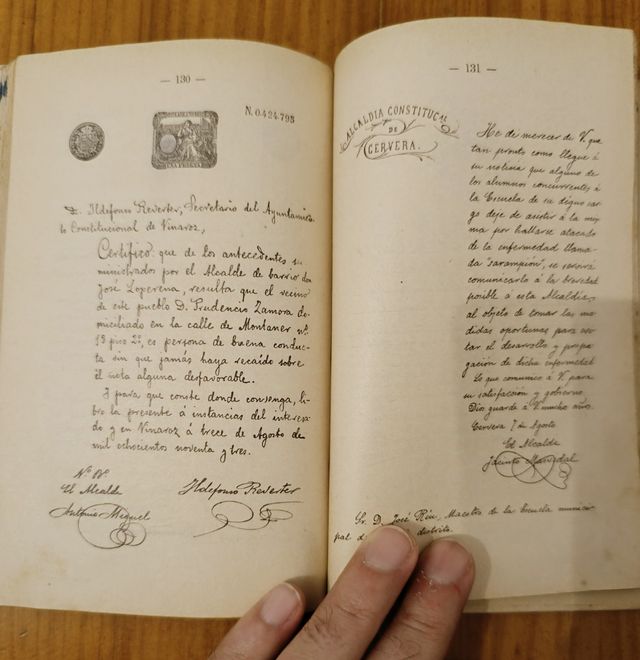 — 130 —
N. 0.424.795
D. Ildefonso Reverter, Secretario del Ayuntamien-
to Constitucional de Vinaroz,
Certifico que de los antecedentes su-
ministrados por el Alcalde de barrio don
José Loperena, resulta que el vecino
de este pueblo D. Prudencio Zamora do-
miciliado en la calle de Montaner nº
15 piso 2º, es persona de buena conduc-
ta sin que jamás haya recaído sobre
él nota alguna desfavorable.
Y para que conste donde convenga, li-
bro la presente á instancias del interesa-
do y en Vinaroz á trece de Agosto de
mil ochocientos noventa y tres.
Vº Bº
El Alcalde
Antonio Miguel
Ildefonso Reverter
— 131 —
ALCALDIA CONSTITUCAL
DE
CERVERA.
He de merecer de V. que
tan pronto como llegue á
su noticia que alguno de
los alumnos concurrentes á
la Escuela de su digno car-
go deje de asistir á la mis-
ma por hallarse atacado
de la enfermedad llama-
da "sarampión", se servirá
comunicarlo á la brevedad
posible á esta Alcaldía,
al objeto de tomar las me-
didas oportunas para evi-
tar el desarrollo y propa-
gación de dicha enfermedad.
Lo que comunico á V. para
su satisfacción y gobierno.
Dios guarde á V. mucho años.
Cervera 7 de Agosto
El Alcalde
Jacinto
Sr. D. José Riu, Maestro de la Escuela munici-
pal d distrito.